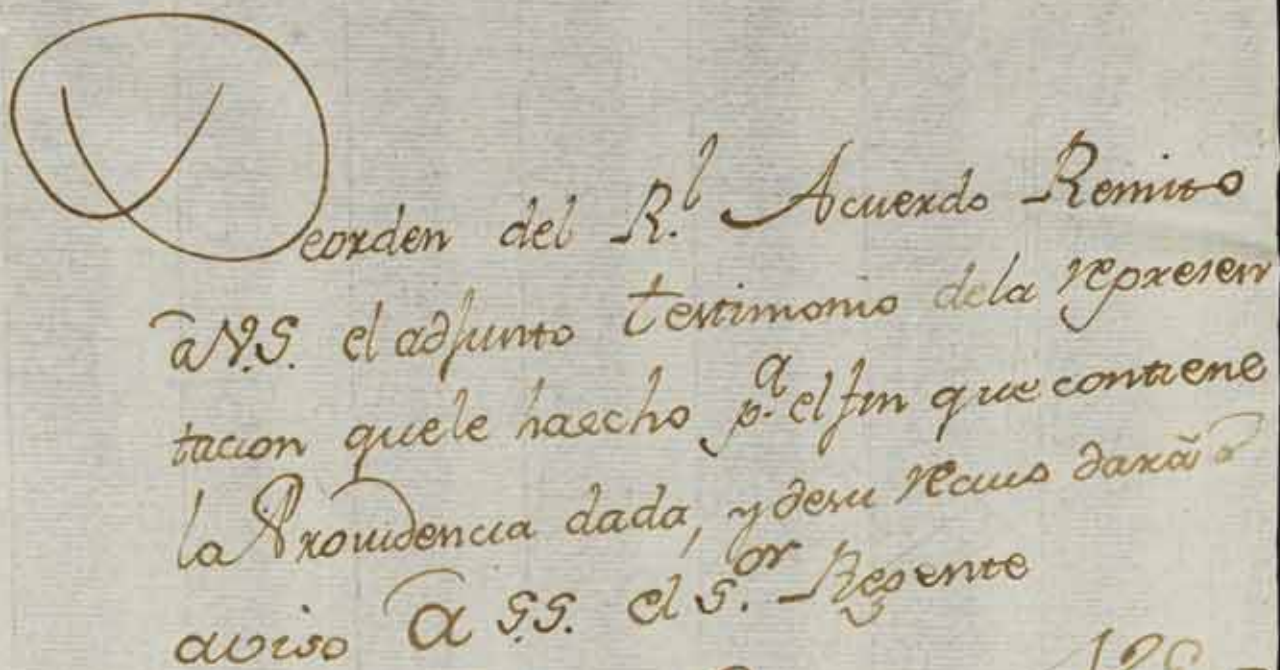 De orden del R.l Acuerdo Remito
a V.S. el adjunto testimonio dela represen
tacion quele haecho p.a el fin que contiene
la Providencia dada, y desu recivo dará a
aviso a S.S. el S.or Regente